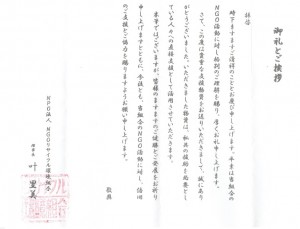 御礼とご挨拶
拝啓
時下ますますご清祥のこととお慶び申し上げます。平素は当組合の
NGO活動に対し格別のご理解を賜り、厚くお礼申し上げます。
さて、この度は貴重な支援物資をお送りいただきまして、誠にあり
がとうございました。いただきました物資は、私共の援助を必要とし
ている人々への直接支援として活用させていただきます。
末筆ではございますが、皆様のますますのご健勝とご発展をお祈り
申し上げますとともに、今後とも、当組合のNGO活動に対し、倍旧
のご支援とご協力を賜りますようお願い申し上げます。
敬具
NPO法人 NGOリサイクル環境組合
理事長 叶 里美